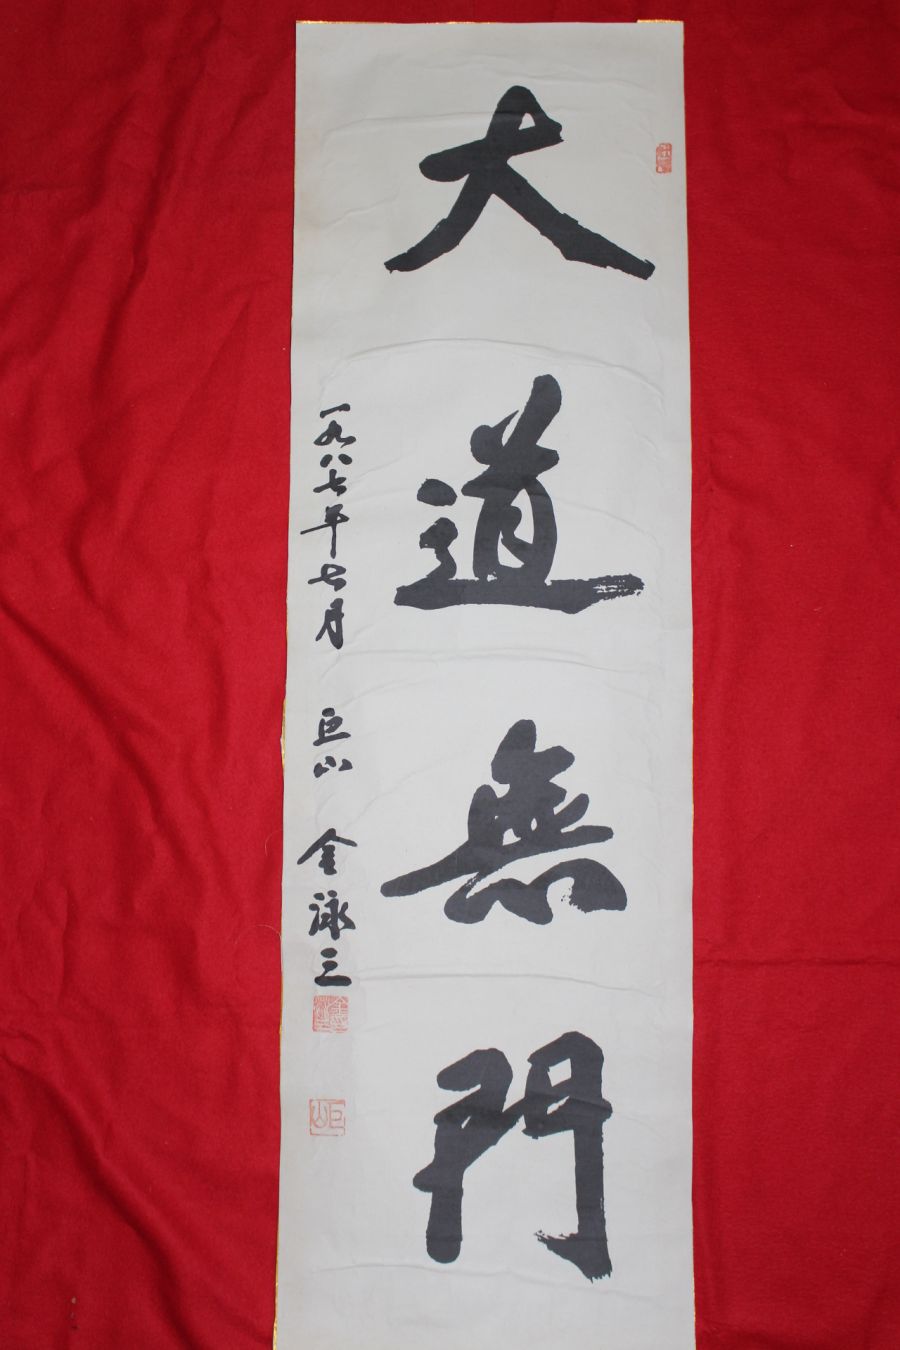 大道無門
一九八七年七月 巨山 金泳三
巨山